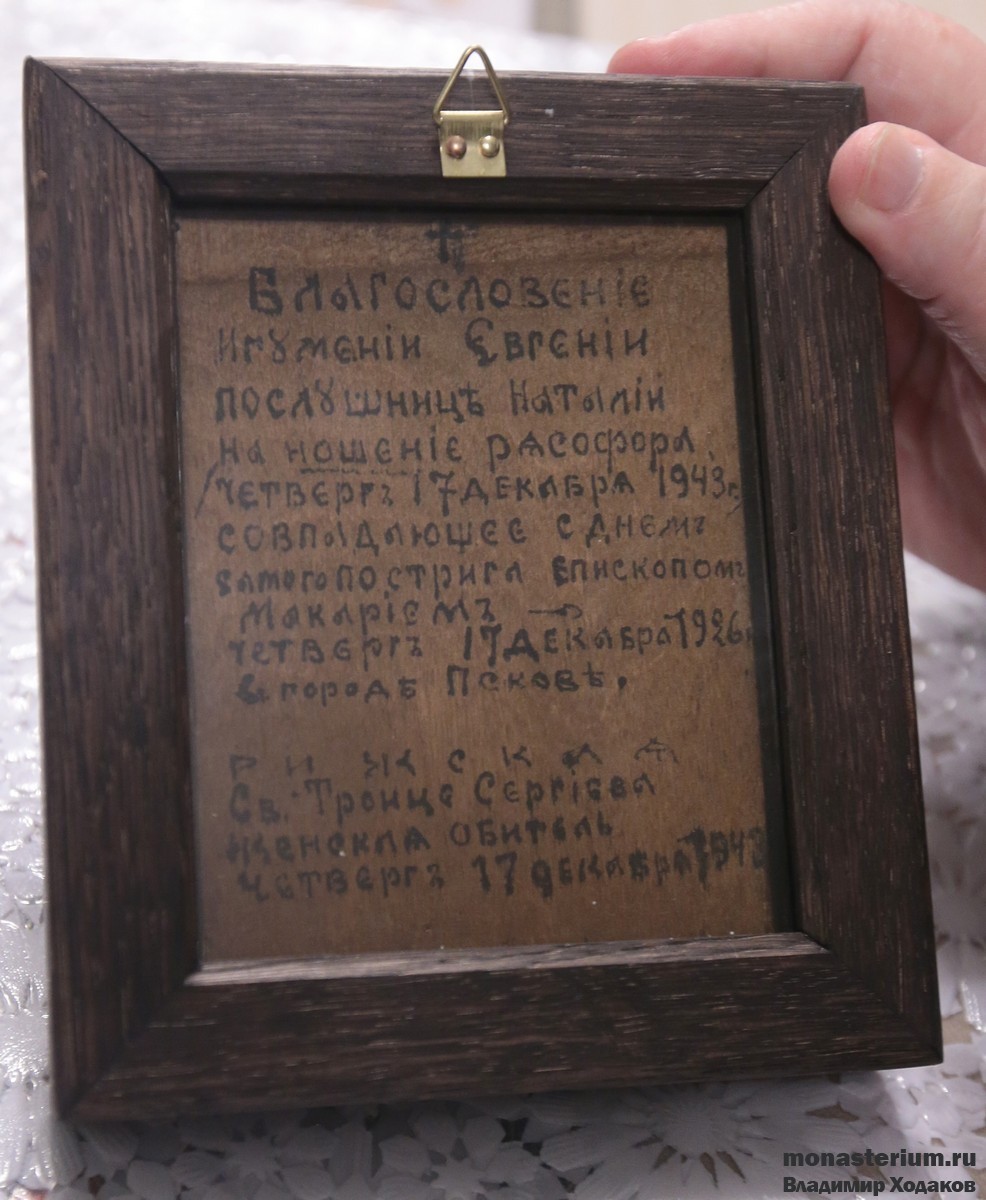 Благословенїе
Игꙋменїи Євгенїи
послꙋшницѣ Наталїи
на ношенїе рѧсофора
/четвергъ 17 декабрѧ 1943 г./
совпадающее с днемъ
самого пострига епископомъ
Макарїемъ —
четвергъ 17 декабра 1926 г
в городѣ Псковѣ.
Рижскаѧ
Св. Троице Сергїева
женскаѧ обитель
четвергъ 17 декабрѧ 1943
monasterium.ru
Владимир Ходаков